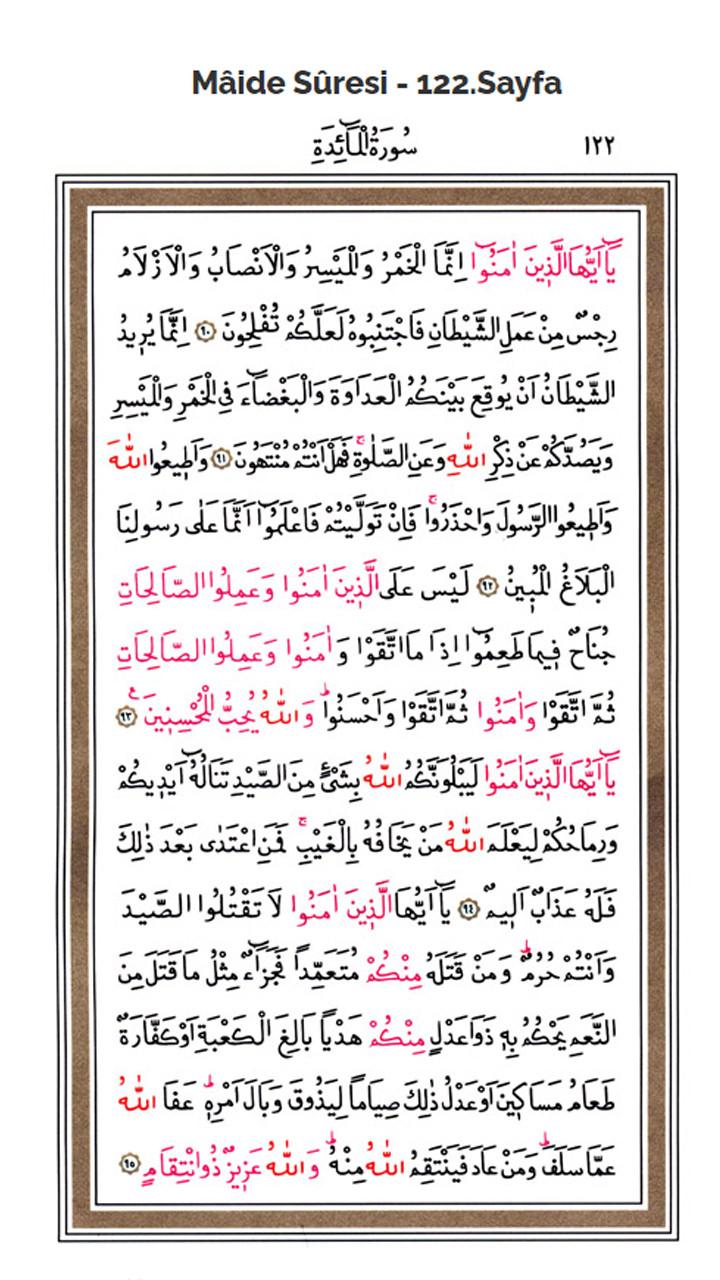 Mâide Sûresi - 122.Sayfa
سُورَةُ الْمَٓائِدَةِ
١٢٢
يَٓا اَيُّهَا الَّذٖينَ اٰمَنُٓوا اِنَّمَا الْخَمْرُ وَالْمَيْسِرُ وَالْاَنْصَابُ وَالْاَزْلَامُ
رِجْسٌ مِنْ عَمَلِ الشَّيْطَانِ فَاجْتَنِبُوهُ لَعَلَّكُمْ تُفْلِحُونَ ﴿٩٠﴾ اِنَّمَا يُرٖيدُ
الشَّيْطَانُ اَنْ يُوقِعَ بَيْنَكُمُ الْعَدَاوَةَ وَالْبَغْضَٓاءَ فِي الْخَمْرِ وَالْمَيْسِرِ
وَيَصُدَّكُمْ عَنْ ذِكْرِ اللّٰهِ وَعَنِ الصَّلٰوةِۚ فَهَلْ اَنْتُمْ مُنْتَهُونَ ﴿٩١﴾ وَاَطٖيعُوا اللّٰهَ
وَاَطٖيعُوا الرَّسُولَ وَاحْذَرُواۚ فَاِنْ تَوَلَّيْتُمْ فَاعْلَمُٓوا اَنَّمَا عَلٰى رَسُولِنَا
الْبَلَاغُ الْمُبٖينُ ﴿٩٢﴾ لَيْسَ عَلَى الَّذٖينَ اٰمَنُوا وَعَمِلُوا الصَّالِحَاتِ
جُنَاحٌ فٖيمَا طَعِمُٓوا اِذَا مَا اتَّقَوْا وَاٰمَنُوا وَعَمِلُوا الصَّالِحَاتِ
ثُمَّ اتَّقَوْا وَاٰمَنُوا ثُمَّ اتَّقَوْا وَاَحْسَنُواۜ وَاللّٰهُ يُحِبُّ الْمُحْسِنٖينَࣖ ﴿٩٣﴾
يَٓا اَيُّهَا الَّذٖينَ اٰمَنُوا لَيَبْلُوَنَّكُمُ اللّٰهُ بِشَيْءٍ مِنَ الصَّيْدِ تَنَالُهُٓ اَيْدٖيكُمْ
وَرِمَاحُكُمْ لِيَعْلَمَ اللّٰهُ مَنْ يَخَافُهُ بِالْغَيْبِۚ فَمَنِ اعْتَدٰى بَعْدَ ذٰلِكَ
فَلَهُ عَذَابٌ اَلٖيمٌ ﴿٩٤﴾ يَٓا اَيُّهَا الَّذٖينَ اٰمَنُوا لَا تَقْتُلُوا الصَّيْدَ
وَاَنْتُمْ حُرُمٌۜ وَمَنْ قَتَلَهُ مِنْكُمْ مُتَعَمِّدًا فَجَزَٓاءٌ مِثْلُ مَا قَتَلَ مِنَ
النَّعَمِ يَحْكُمُ بِهٖ ذَوَا عَدْلٍ مِنْكُمْ هَدْيًا بَالِغَ الْكَعْبَةِ اَوْ كَفَّارَةٌ
طَعَامُ مَسَاكٖينَ اَوْ عَدْلُ ذٰلِكَ صِيَامًا لِيَذُوقَ وَبَالَ اَمْرِهٖۜ عَفَا اللّٰهُ
عَمَّا سَلَفَۜ وَمَنْ عَادَ فَيَنْتَقِمُ اللّٰهُ مِنْهُۜ وَاللّٰهُ عَزٖيزٌ ذُو انْتِقَامٍ ﴿٩٥﴾